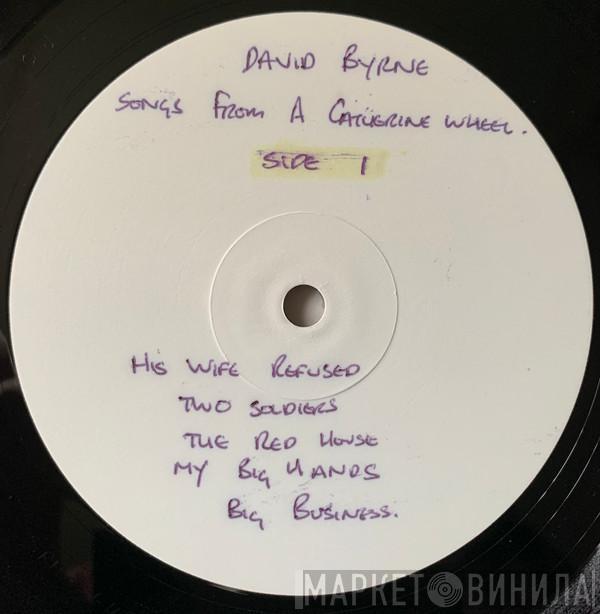 DAVID BYRNE
SONGS FROM A CATHERINE WHEEL.
SIDE 1
HIS WIFE REFUSED
TWO SOLDIERS
THE RED HOUSE
MY BIG HANDS
BIG BUSINESS.
МАРКЕТ ВИНИЛА